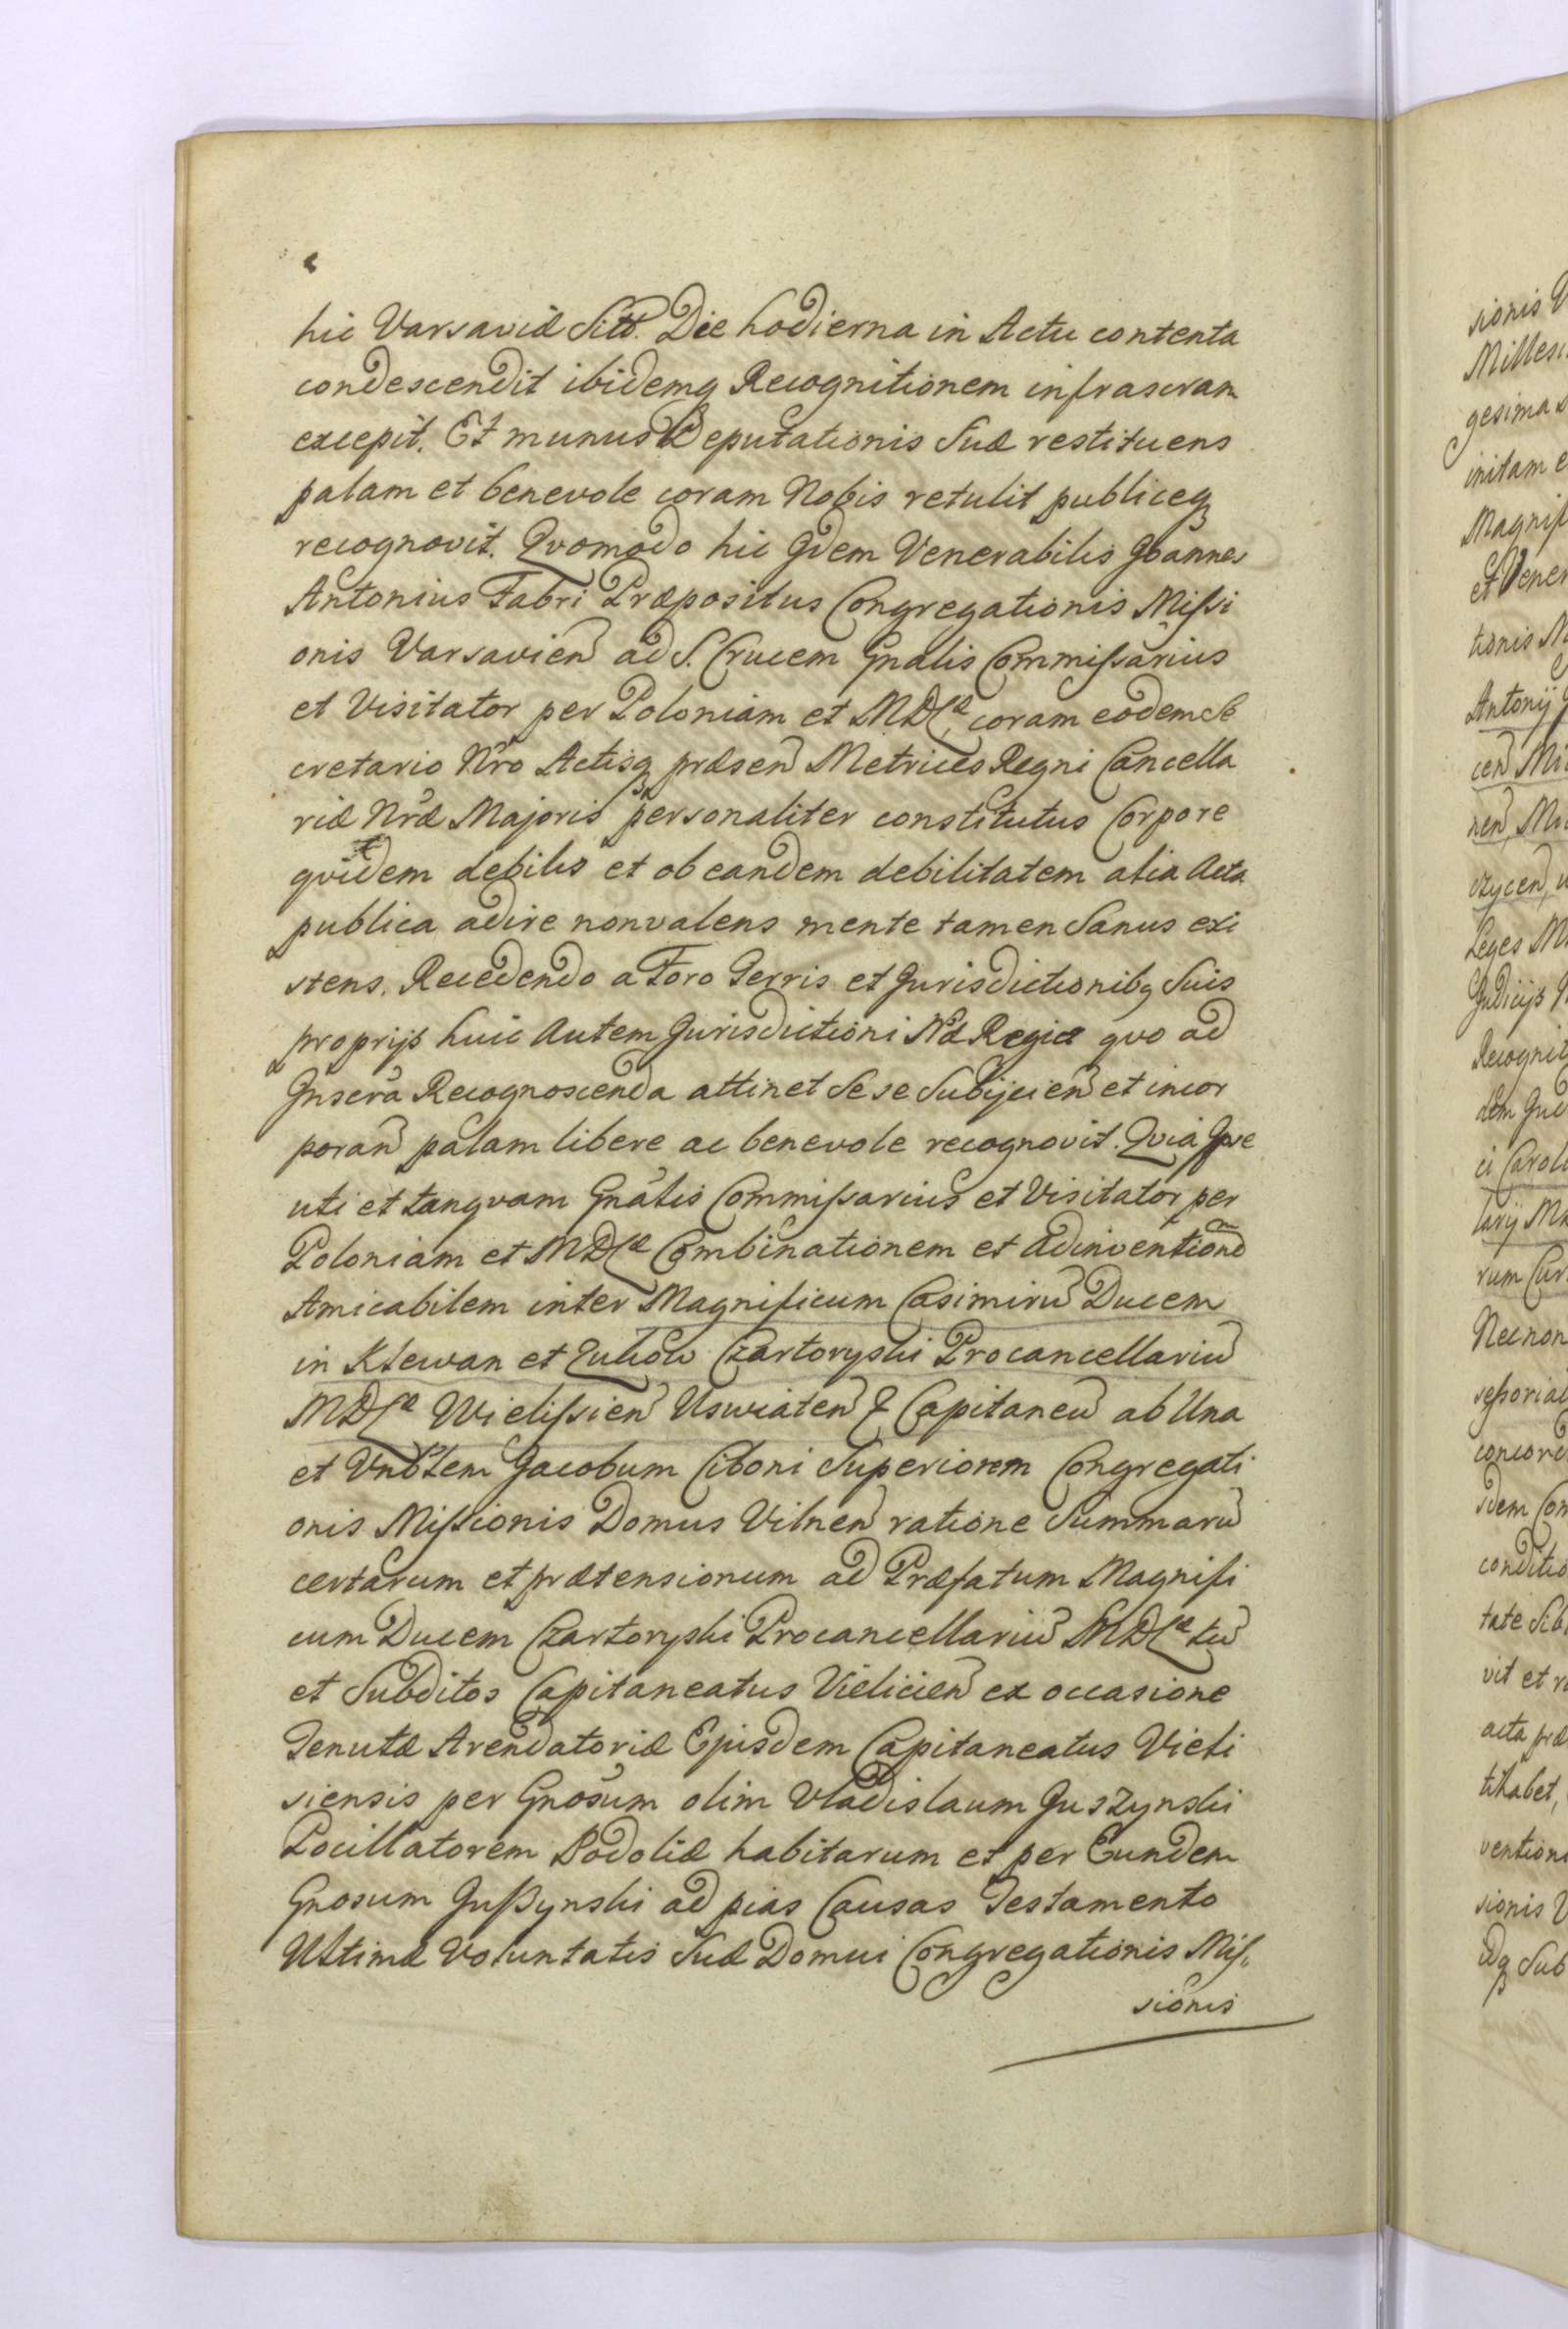 hic Varsaviæ Sitt. Die hodierna in Actu contenta
condescendit ibidemq Recognitionem infrascram
excepit. Et munus Deputationis Suæ restituens
palam et benevole coram Nobis retulit publiceq
recognovit. Qvomodo hic Qdem Venerabilis Joannes
Antonius Fabri Præpositus Congregationis Missi
onis Varsavien ad S. Crucem Gnalis Commissarius
et Visitator per Poloniam et MDLæ coram eodem Se
cretario Nro Actisq præsen Metrices Regni Cancella
riæ Nræ Majoris personaliter constitutus Corpore
qvidem debilis et ob eandem debilitatem alia Acta
publica adire nonvalens mente tamen Sanus exi
stens. Recedendo a Foro Terris et Jurisdictionibq Suis
proprijs huic Autem Jurisdictioni Næ Regiæ qvo ad
Inscra Recognoscenda attinet Sese Subijcien et incor
poran palam libere ac benevole recognovit. Qvia Ipse
uti et tanqvam Gnalis Commissarius et Visitator per
Poloniam et MDLæ Combinationem et Adinventionem
Amicabilem inter Magnificum Casimiru Ducem
in Klewan et Zukow Czartoryski Procancellariu
MDLæ Wielissien Uswiaten & Capitaneu ab Una
et Vnbtem Jacobum Ciboni Superiorem Congregati
onis Missionis Domus Vilnen ratione Summaru
certarum et prætensionum ad Præfatum Magnifi
cum Ducem Czartoryski Procancellariu MDLæ tu
et Subditos Capitaneatus Vielicien ex occasione
Tenutæ Arendatoriæ Ejusdem Capitaneatus Vieli
siensis per Gnosum olim Vladislaum Juszynski
Pocillatorem Podoliæ habitarum et per Eundem
Gnosum Jußynski ad pias Causas Testamento
Ultimæ Voluntatis Suæ Domui Congregationis Mis„
sionis